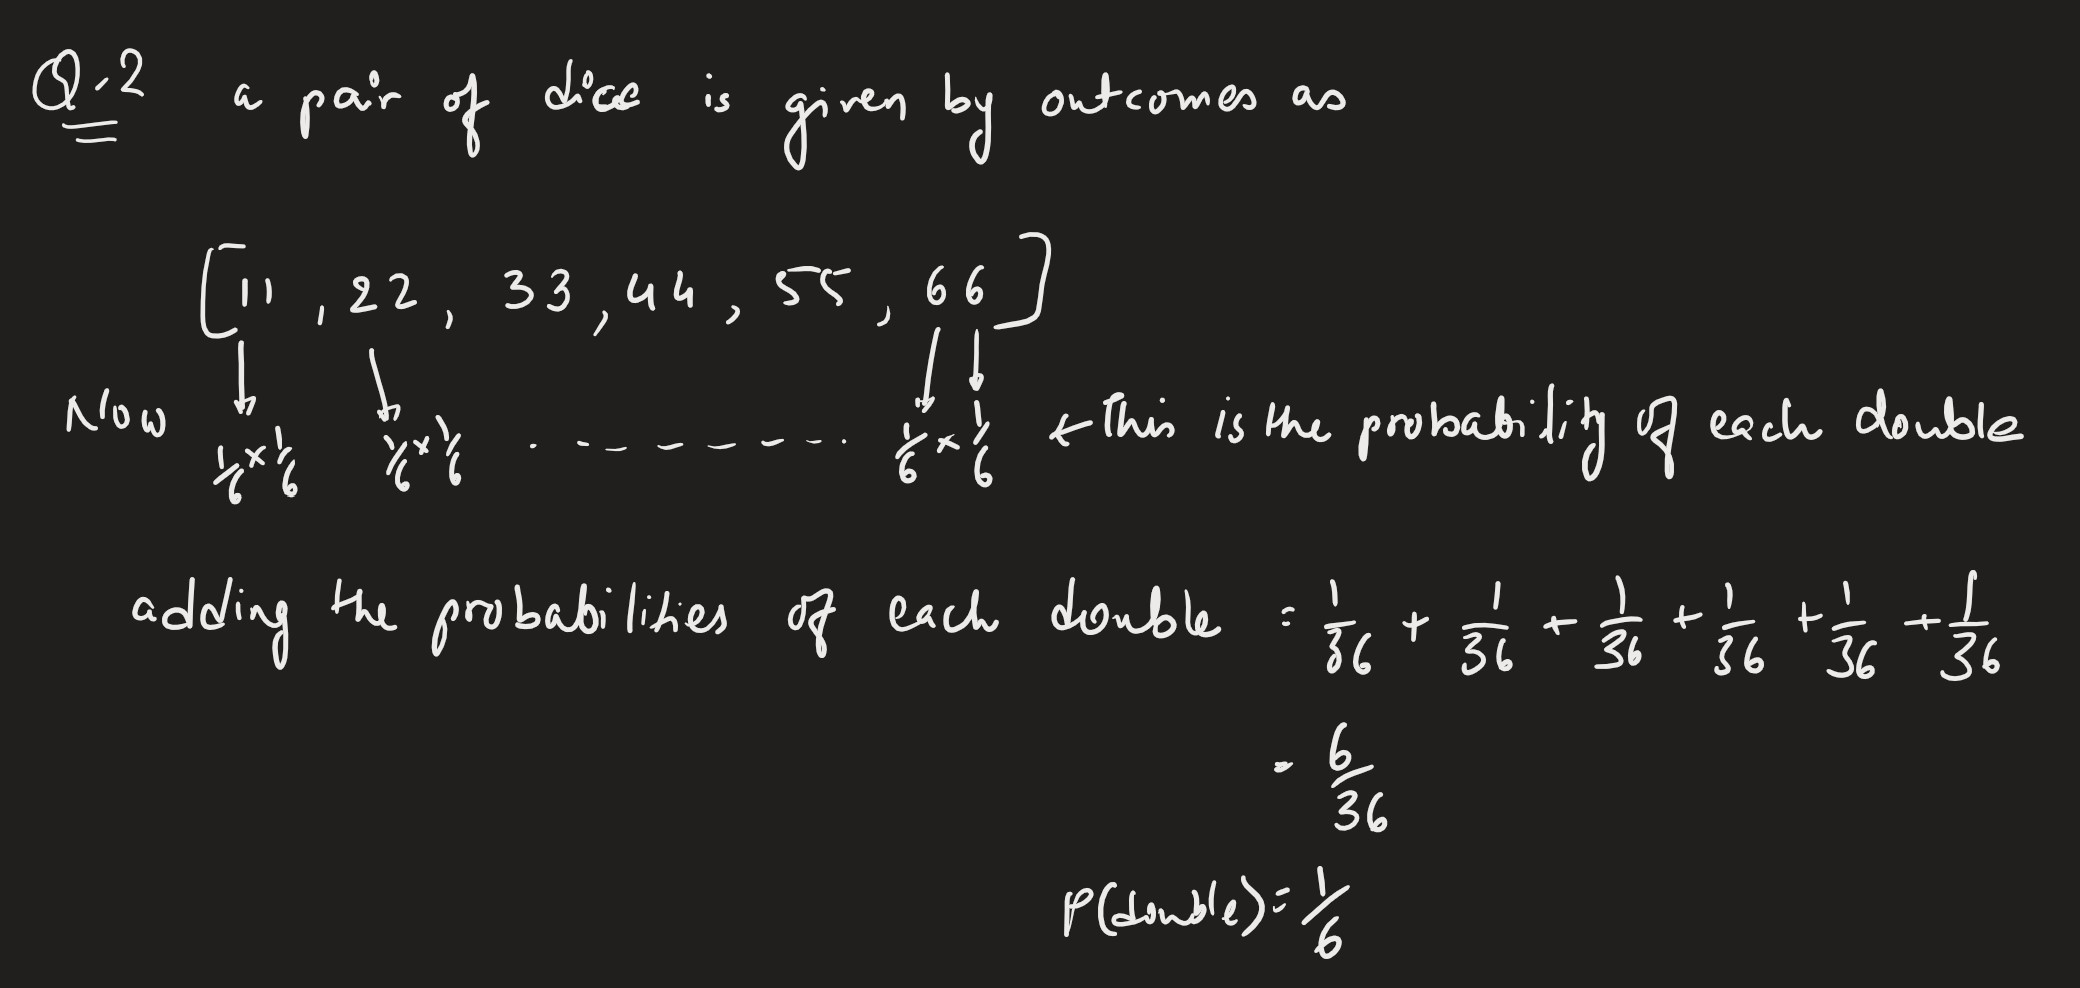 Q.2 a pair of dice is given by outcomes as
[11, 22, 33, 44, 55, 66]
Now 1/6 × 1/6 1/6 × 1/6 . - - - - - - . 1/6 × 1/6 ← This is the probability of each double
adding the probabilities of each double = 1/36 + 1/36 + 1/36 + 1/36 + 1/36 + 1/36
= 6/36
P(double) = 1/6